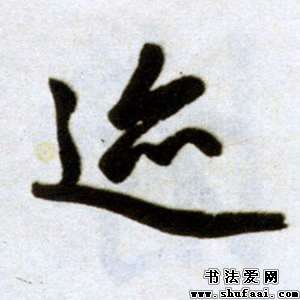 迹
书法爱网
www.shufaai.com